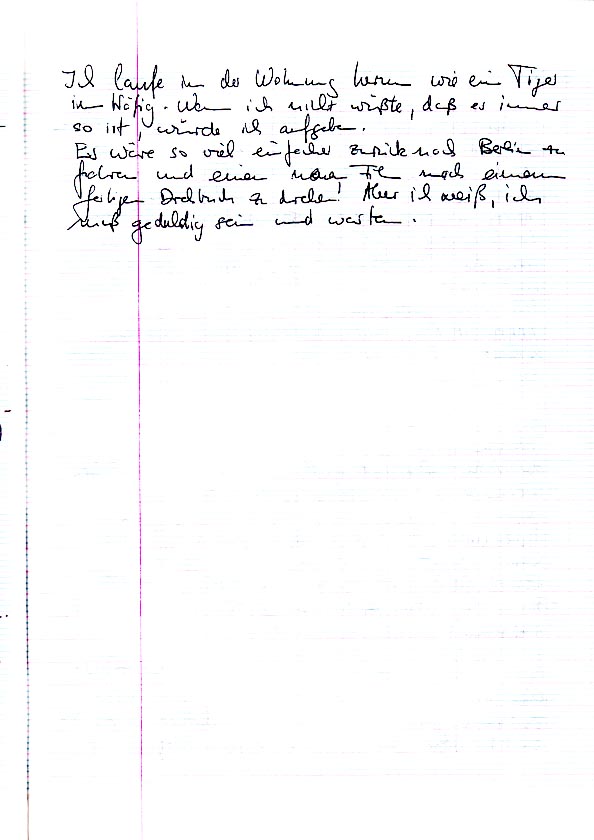 Ich laufe in der Wohnung herum wie ein Tiger
im Käfig. Wenn ich nicht wüßte, daß es immer
so ist, würde ich aufgeben.
Es wäre so viel einfacher zurück nach Berlin zu
fahren und einen neuen Film nach einem
fertigen Drehbuch zu drehen! Aber ich weiß, ich
muß geduldig sein und warten.